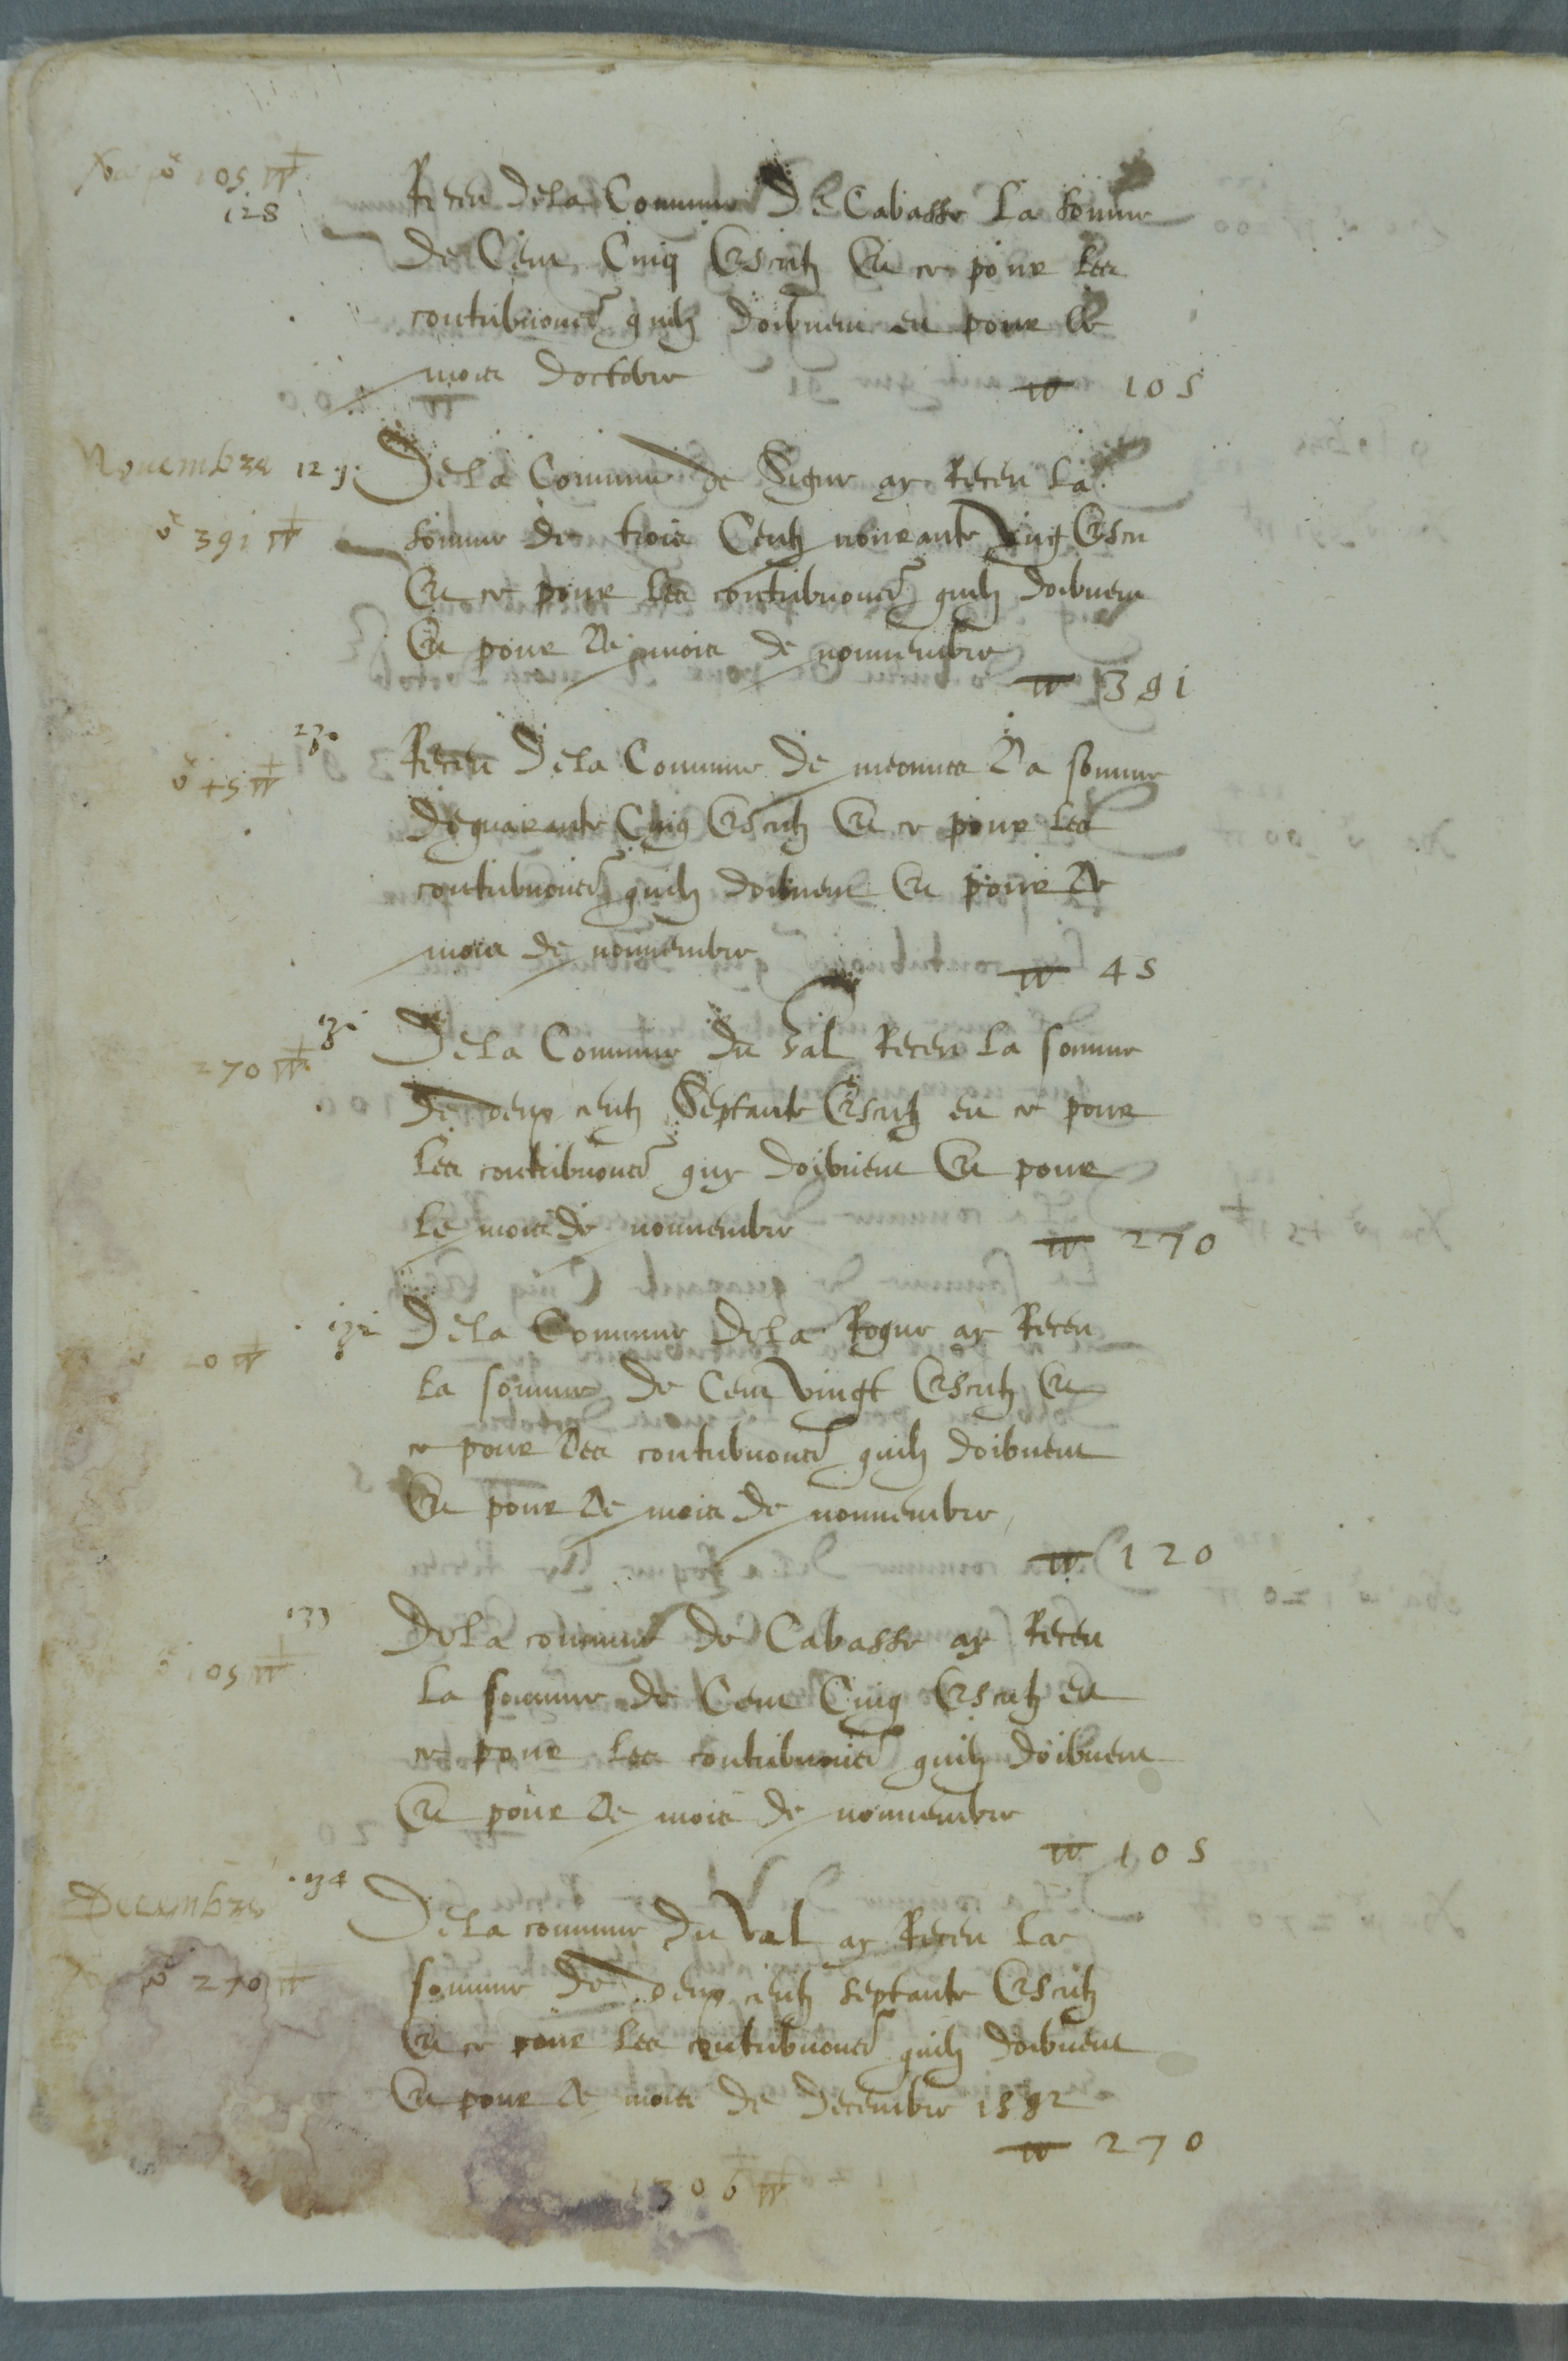 105
128
Receu de la Commune de Cabasse La somme
de Cent Cinq Escutz En ce pour les
contribuons quilz doibuent en pour le
mois doctobre
105
Nouembre 129
De la Commune de Signe ay Receu La
391
somme de trois Centz nonante Ung Escu
En ce pour les contribuons quilz doibuent
En pour le mois de nouuembre
391
Receu De la Commune de La somme
45
de quarante Cinq Escutz En ce pour les
contribuons quilz doibuent En pour le
mois de nouuembre
45
De la Commune du Val Receu La somme
270
de deux centz Septante Escutz en ce pour
les contribuons quy doibuent En pour
Le mois de nouuembre
270
De la Commune de la Rogue ay Receu
20
la somme de Cent vingt Escutz En
ce pour les contribuons quilz doibuent
En pour le mois de nouuembre
120
133
De la commune de Cabasse ay Receu
105
la somme de Cent Cinq Escutz en
ce pour les contribuons quilz doibuent
En pour le mois de nouuembre
105
Decembre
134
De la commune du Val ay Receu La
270
somme de deux centz septante Escutz
En ce pour les contribuons quilz doibuent
En pour le mois de decembre 1592
270
1306